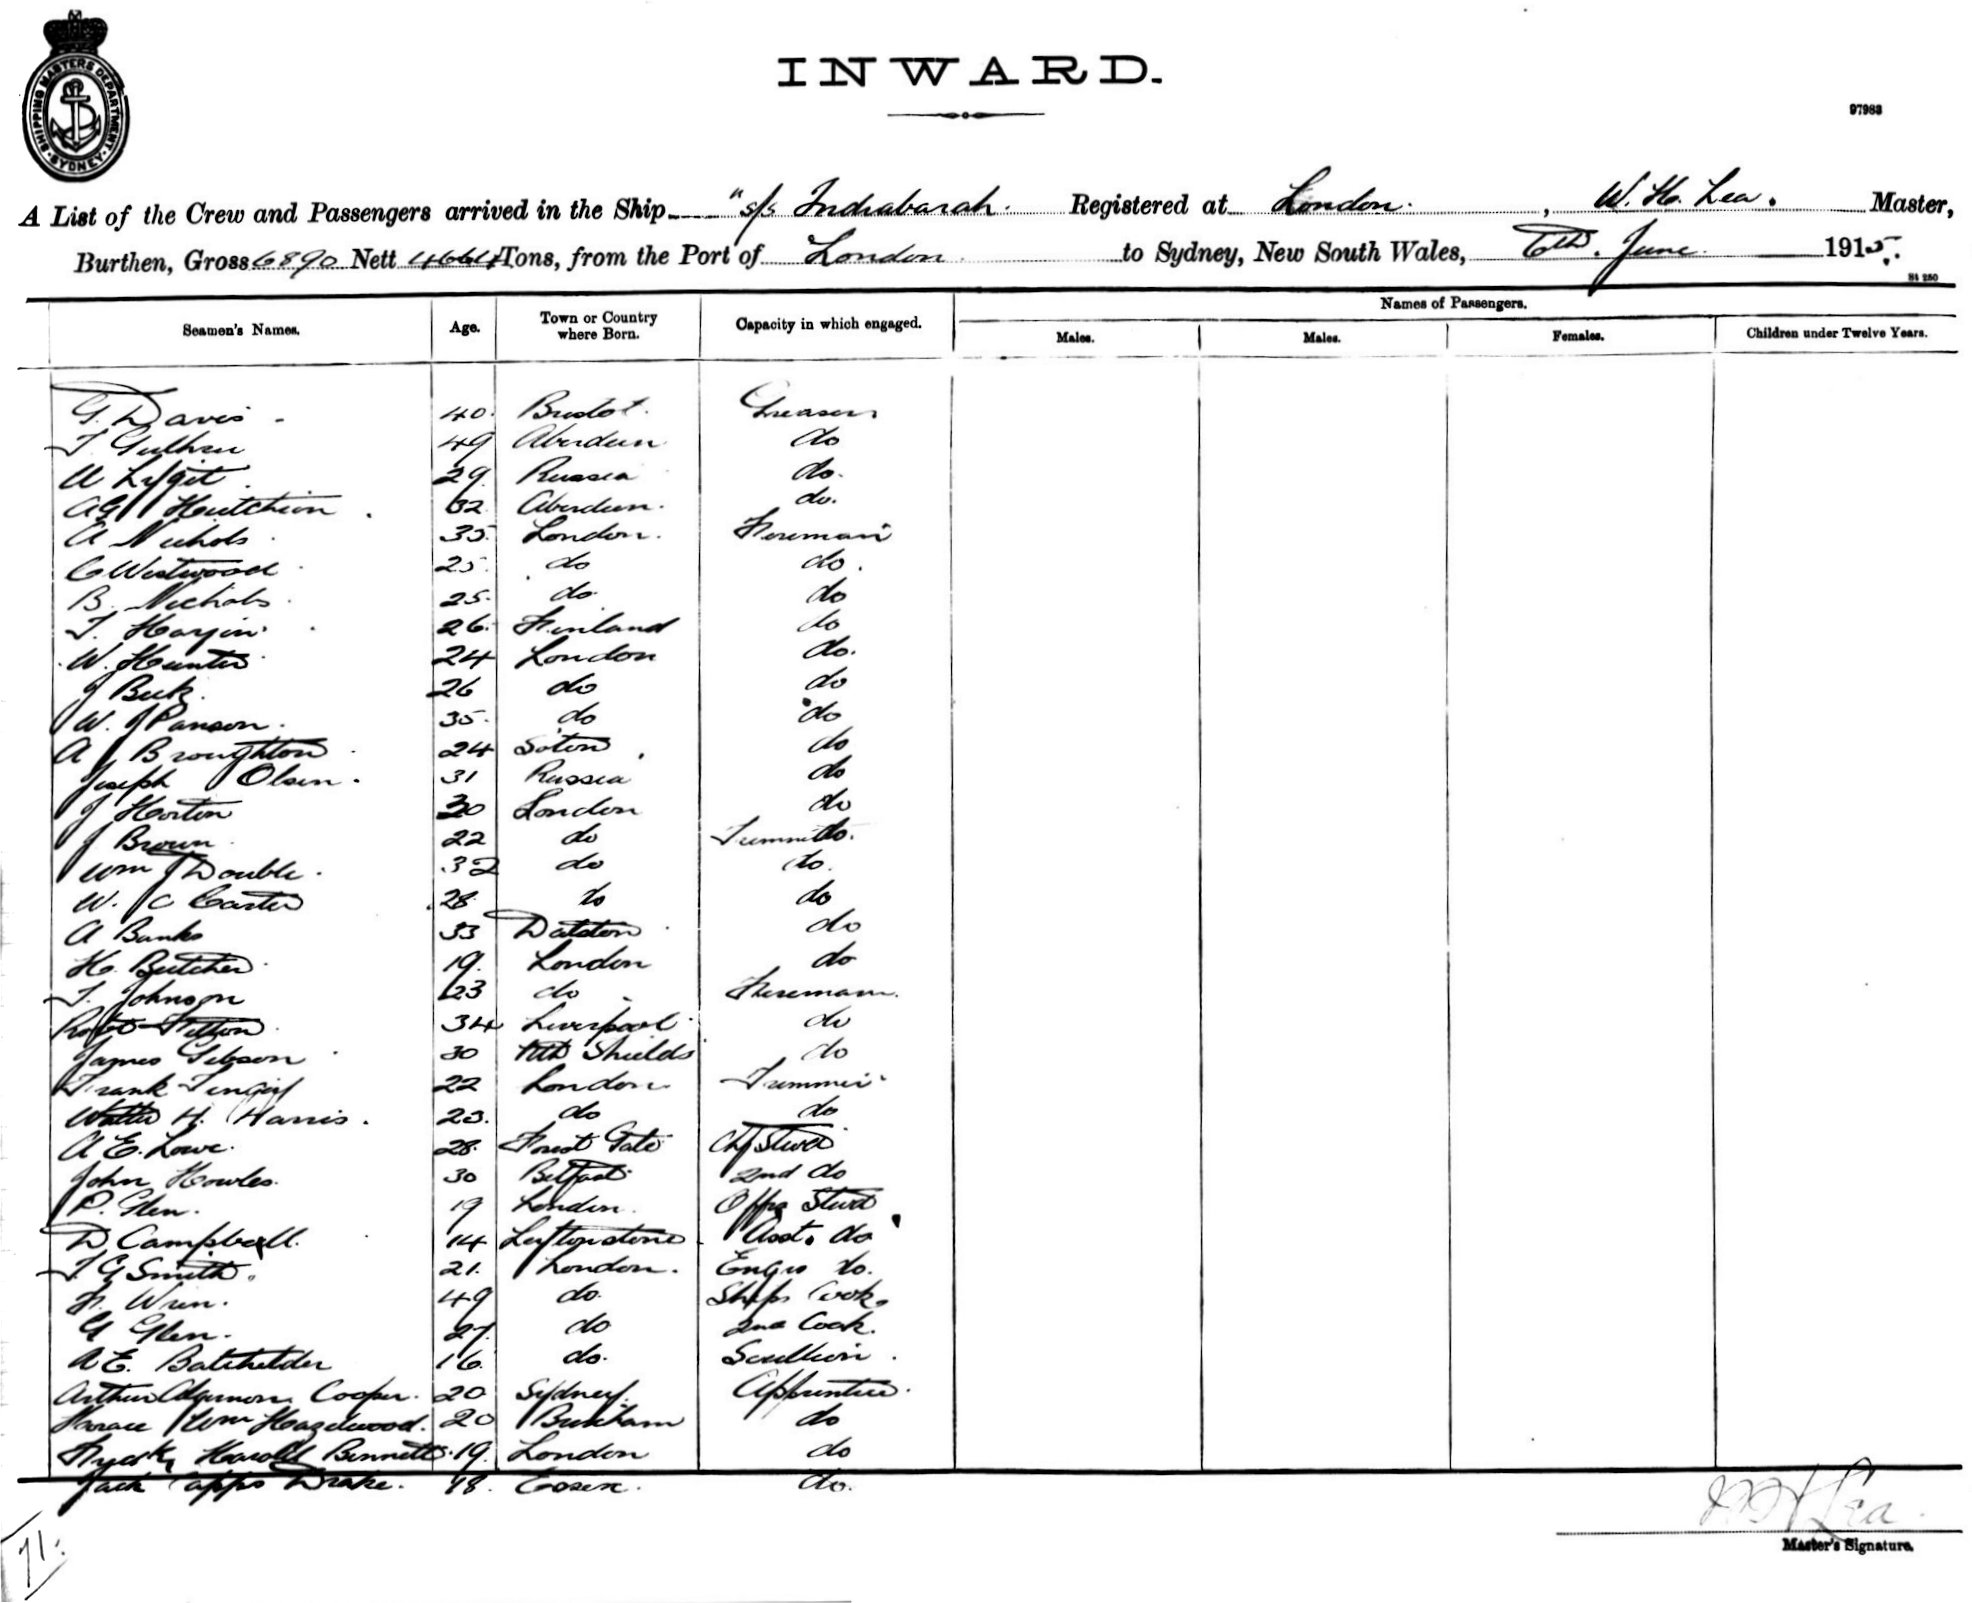 SHIPPING MASTERS DEPARTMENT. SYDNEY.
INWARD.
97983
A List of the Crew and Passengers arrived in the Ship "s/s Indrabarah. Registered at London. , W. H. Lea. Master,
Burthen, Gross 6890 Nett 4664 Tons, from the Port of London to Sydney, New South Wales, 6th. June 1915.
St 250
Seamen's Names. Age. Town or Country where Born. Capacity in which engaged. Names of Passengers.
Males. Males. Females. Children under Twelve Years.
G. Davis 40. Bristol. Greaser
J Guthrie 49 Aberdeen do
A 29 Russia do.
AG Hutchion. 32 Aberdeen. do.
A Nichols 35 London. Fireman
C Westwood 25 do do.
B. Nichols. 25. do. do
T. 26. Finland do
W. Hunter 24 London do.
J Beck. 26 do do
W. J Panson. 35. do do
A J Broughton 24 Soton do
Joseph Olsen. 31 Russia do
J Horton 30 London do
J Brown 22 do Trimmer do.
Wm J Double. 32 do do.
W. C Carter 28. do do
A Banks 33 Dalston do
H. Butcher 19. London do
T. Johnson 23 do Fireman.
Robt 34 Liverpool do
James Gibson 30 Nth Shields do
Frank 22 London. Trimmer.
Walter H. Harris. 23. do do
A E. Lowe. 28. Forest Gate Chf Stwd
John Howles. 30 Belfast 2nd do
P. Glen. 19 London. Offrs Stwd
D Campbell. 14 Leytonstone Asst. do
T. G Smith. 21. London. Engrs do.
F. Wren. 49 do. Ships Cook.
G Glen. 27. do 2nd Cook.
A E. Batchelder 16. do. Scullion.
Arthur Algernon Cooper. 20 Sydney. Apprentice.
Horace Wm Hazelwood. 20 Brixham do
Fredk Harold Bennett. 19. London do
Jack Apps Drake. 18. Essex. do.
W H Lea.
Master's Signature.
71.